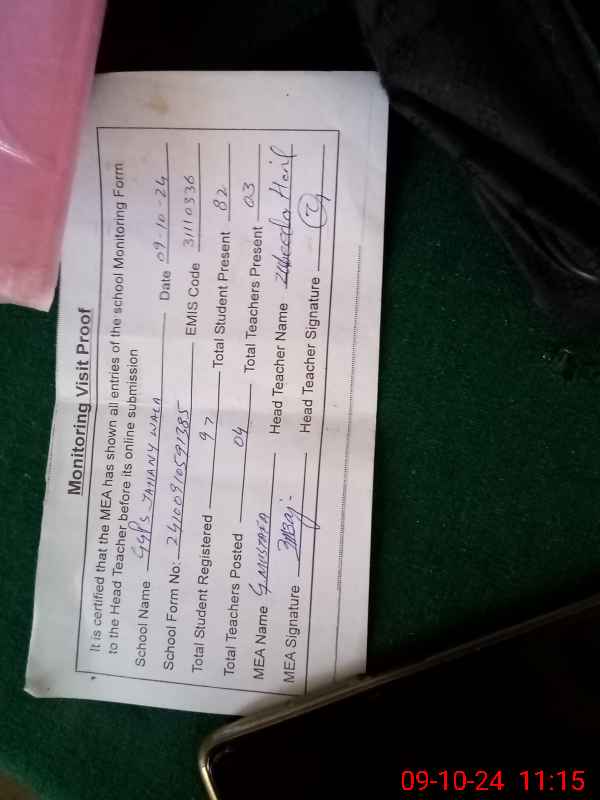 Monitoring Visit Proof
It is certified that the MEA has shown all entries of the school Monitoring Form
to the Head Teacher before its online submission
School Name GGPS JAHANY WALA Date 09-10-24
School Form No: 24100910591385 EMIS Code 31110336
Total Student Registered 97 Total Student Present 82
Total Teachers Posted 04 Total Teachers Present 03
MEA Name G.MUSTAFA Head Teacher Name
MEA Signature Head Teacher Signature
09-10-24 11:15